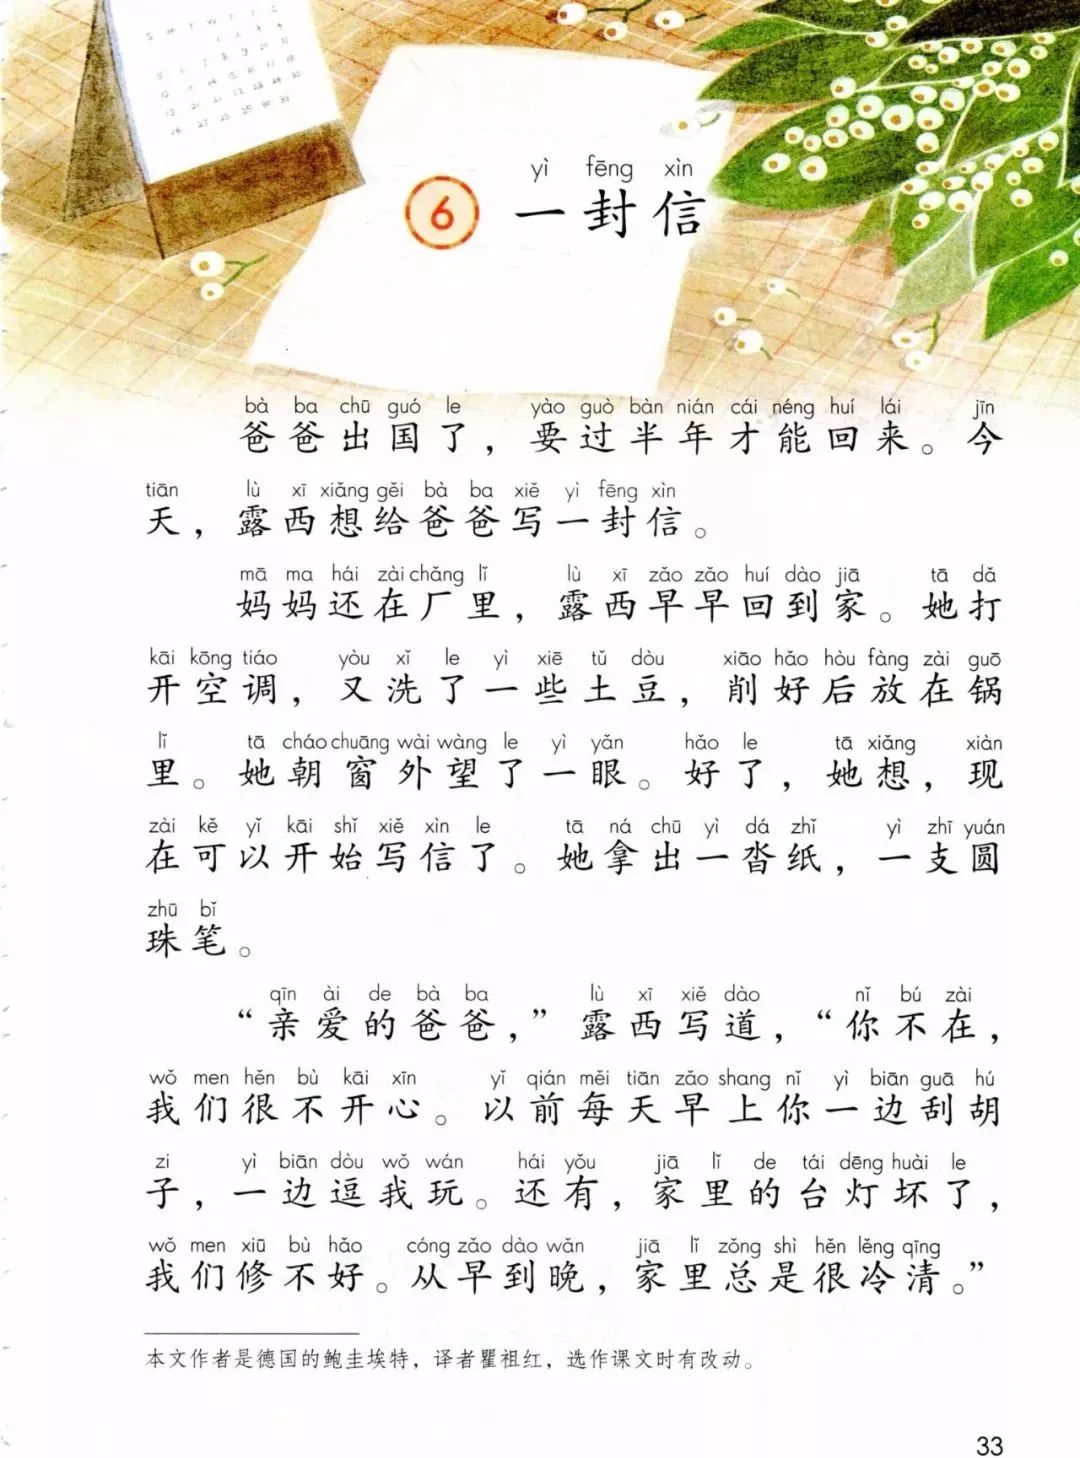 yì fēng xìn
6 一封信
bà ba chū guó le yào guò bàn nián cái néng huí lái jīn
爸爸出国了，要过半年才能回来。今
tiān lù xī xiǎng gěi bà ba xiě yì fēng xìn
天，露西想给爸爸写一封信。
mā ma hái zài chǎng lǐ lù xī zǎo zǎo huí dào jiā tā dǎ
妈妈还在厂里，露西早早回到家。她打
kāi kōng tiáo yòu xǐ le yì xiē tǔ dòu xiāo hǎo hòu fàng zài guō
开空调，又洗了一些土豆，削好后放在锅
lǐ tā cháo chuāng wài wàng le yì yǎn hǎo le tā xiǎng xiàn
里。她朝窗外望了一眼。好了，她想，现
zài kě yǐ kāi shǐ xiě xìn le tā ná chū yì dá zhǐ yì zhī yuán
在可以开始写信了。她拿出一沓纸，一支圆
zhū bǐ
珠笔。
qīn ài de bà ba lù xī xiě dào nǐ bú zài
“亲爱的爸爸，”露西写道，“你不在，
wǒ men hěn bù kāi xīn yǐ qián měi tiān zǎo shang nǐ yì biān guā hú
我们很不开心。以前每天早上你一边刮胡
zi yì biān dòu wǒ wán hái yǒu jiā lǐ de tái dēng huài le
子，一边逗我玩。还有，家里的台灯坏了，
wǒ men xiū bù hǎo cóng zǎo dào wǎn jiā lǐ zǒng shì hěn lěng qīng
我们修不好。从早到晚，家里总是很冷清。”
本文作者是德国的鲍圭埃特，译者瞿祖红，选作课文时有改动。
33